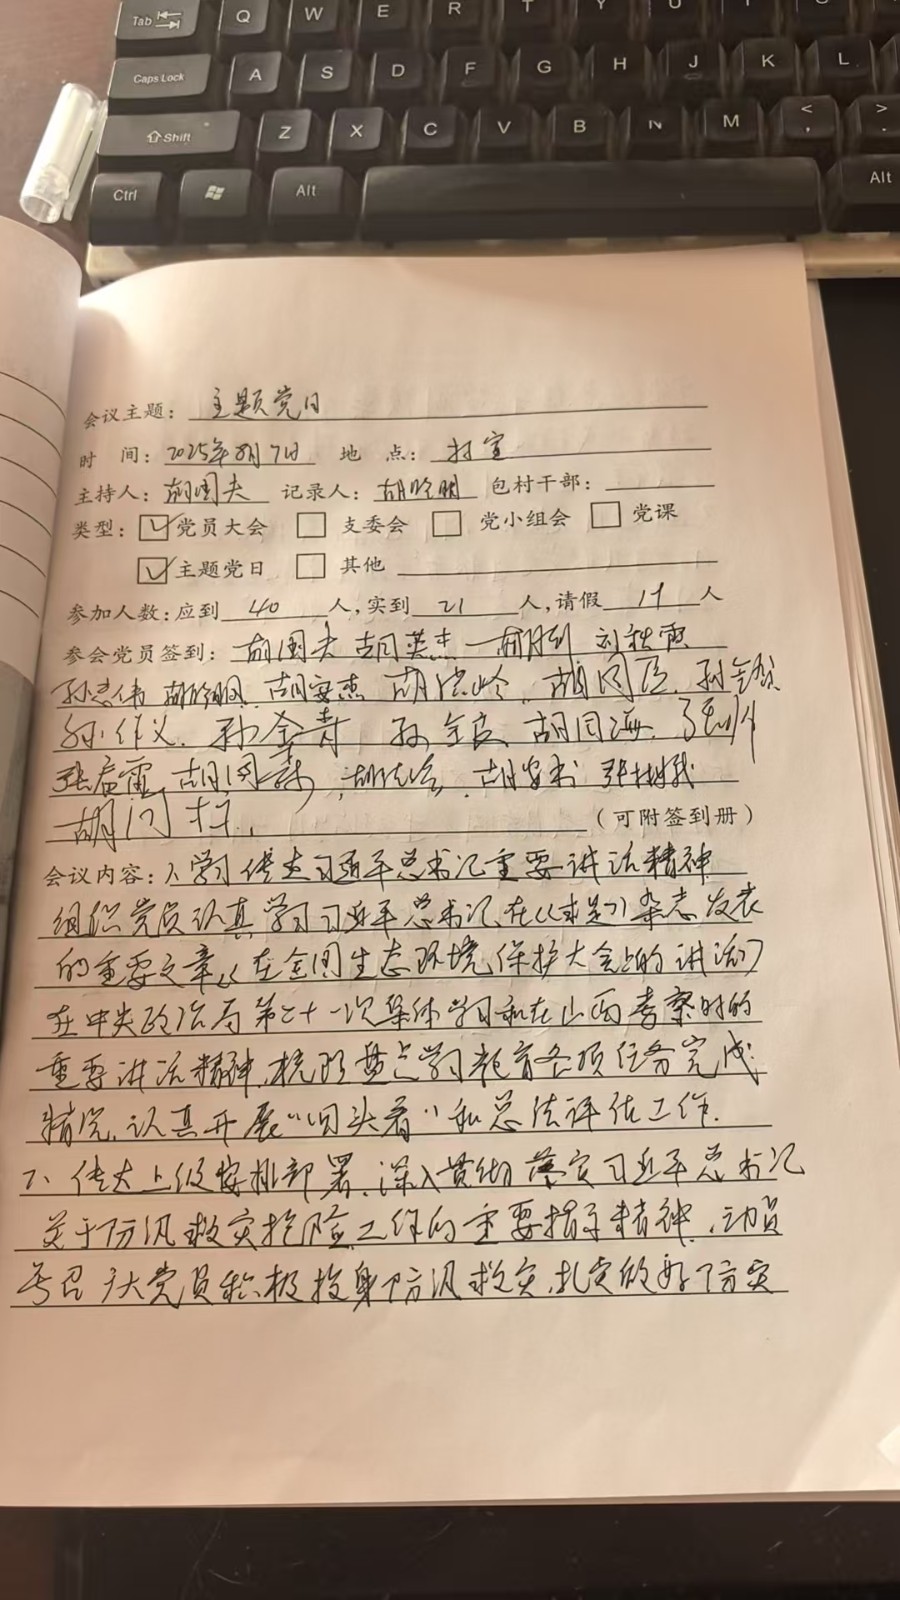 Tab Q W E R T Y U
Caps Lock A S D F G H J K L
Shift Z X C V B N M < , > .
Ctrl Alt Alt
会议主题：主题党日
时 间：2025年8月7日 地 点：村室
主持人：胡国夫 记录人：胡晓朋 包村干部：
类型：党员大会 支委会 党小组会 党课
主题党日 其他
参加人数：应到 40 人，实到 21 人，请假 19 人
参会党员签到：胡国夫 胡英杰
孙志伟 胡晓朋 胡安杰
孙金青 孙金良 胡同海
胡同森
（可附签到册）
会议内容：1、学习传达习近平总书记重要讲话精神
组织党员认真学习习近平总书记在《求是》杂志发表
的重要文章《在全国生态环境保护大会上的讲话》
在中央政治局第二十一次集体学习和在山西考察时的
重要讲话精神，梳理盘点学习教育各项任务完成
情况，认真开展“回头看”和总结评估工作.
2、传达上级安排部署，深入贯彻落实习近平总书记
关于防汛救灾抢险工作的重要指示精神，动员
号召广大党员积极投身防汛救灾，扎实做好防灾